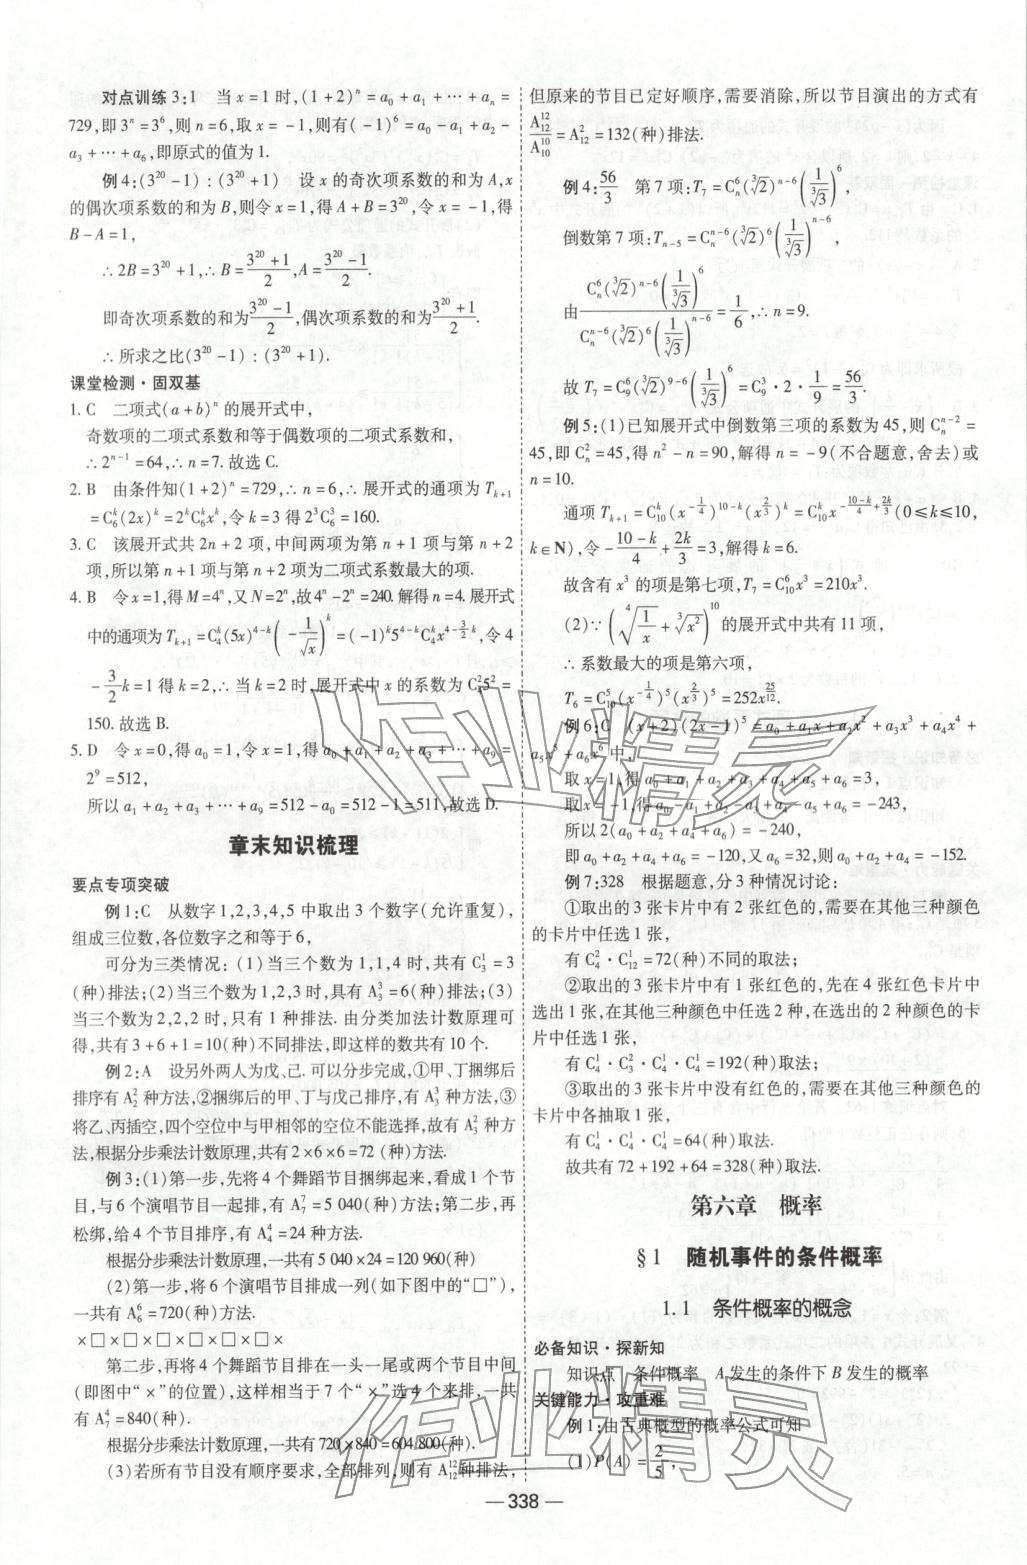 对点训练 3:1　当 x=1 时,(1+2)ⁿ=a₀+a₁+⋯+aₙ=
729,即 3ⁿ=3⁶,则 n=6,取 x=-1,则有(-1)⁶=a₀-a₁+a₂-
a₃+⋯+a₆,即原式的值为 1.
例 4:(3²⁰-1) : (3²⁰+1)　设 x 的奇次项系数的和为 A,x
的偶次项系数的和为 B,则令 x=1,得 A+B=3²⁰,令 x=-1,得
B-A=1,
∴2B=3²⁰+1,∴B=(3²⁰+1)/2,A=(3²⁰-1)/2.
即奇次项系数的和为(3²⁰-1)/2,偶次项系数的和为(3²⁰+1)/2.
∴所求之比(3²⁰-1) : (3²⁰+1).
课堂检测·固双基
1. C　二项式(a+b)ⁿ 的展开式中,
奇数项的二项式系数和等于偶数项的二项式系数和,
∴2ⁿ⁻¹=64,∴n=7. 故选 C.
2. B　由条件知(1+2)ⁿ=729,∴n=6,∴展开式的通项为 T_{k+1}
=C₆ᵏ(2x)ᵏ=2ᵏC₆ᵏxᵏ,令 k=3 得 2³C₆³=160.
3. C　该展开式共 2n+2 项,中间两项为第 n+1 项与第 n+2
项,所以第 n+1 项与第 n+2 项为二项式系数最大的项.
4. B　令 x=1,得 M=4ⁿ,又 N=2ⁿ,故 4ⁿ-2ⁿ=240. 解得 n=4. 展开式
中的通项为 T_{k+1}=C₄ᵏ(5x)^{4-k}(-1/√x)ᵏ=(-1)ᵏ5^{4-k}C₄ᵏx^{4-(3/2)k},令 4
-(3/2)k=1 得 k=2,∴当 k=2 时,展开式中 x 的系数为 C₄²5²=
150. 故选 B.
5. D　令 x=0,得 a₀=1,令 x=1,得 a₀+a₁+a₂+a₃+⋯+a₉=
2⁹=512,
所以 a₁+a₂+a₃+⋯+a₉=512-a₀=512-1=511,故选 D.
章末知识梳理
要点专项突破
例 1:C　从数字 1,2,3,4,5 中取出 3 个数字(允许重复),
组成三位数,各位数字之和等于 6,
可分为三类情况:(1)当三个数为 1,1,4 时,共有 C₃¹=3
(种)排法;(2)当三个数为 1,2,3 时,具有 A₃³=6(种)排法;(3)
当三个数为 2,2,2 时,只有 1 种排法. 由分类加法计数原理可
得,共有 3+6+1=10(种)不同排法,即这样的数共有 10 个.
例 2:A　设另外两人为戊、己. 可以分步完成,①甲、丁捆绑后
排序有 A₂² 种方法,②捆绑后的甲、丁与戊己排序,有 A₃³ 种方法,③
将乙、丙插空,四个空位中与甲相邻的空位不能选择,故有 A₃² 种方
法,根据分步乘法计数原理,共有 2×6×6=72 (种)方法.
例 3:(1)第一步,先将 4 个舞蹈节目捆绑起来,看成 1 个节
目,与 6 个演唱节目一起排,有 A₇⁷=5 040(种)方法;第二步,再
松绑,给 4 个节目排序,有 A₄⁴=24 种方法.
根据分步乘法计数原理,一共有 5 040×24=120 960(种)
(2)第一步,将 6 个演唱节目排成一列(如下图中的“□”),
一共有 A₆⁶=720(种)方法.
×□×□×□×□×□×□×
第二步,再将 4 个舞蹈节目排在一头一尾或两个节目中间
(即图中“×”的位置),这样相当于 7 个“×”选 4 个来排,一共
有 A₇⁴=840(种).
根据分步乘法计数原理,一共有 720×840=604 800(种)
(3)若所有节目没有顺序要求,全部排列,则有 A₁₂¹² 种排法,
但原来的节目已定好顺序,需要消除,所以节目演出的方式有
A₁₂¹²/A₁₀¹⁰=A₁₂²=132(种)排法.
例 4:56/3　第 7 项:T₇=Cₙ⁶(∛2)^{n-6}(1/∛3)⁶,
倒数第 7 项:T_{n-5}=Cₙ^{n-6}(∛2)⁶(1/∛3)^{n-6},
由[Cₙ⁶(∛2)^{n-6}(1/∛3)⁶]/[Cₙ^{n-6}(∛2)⁶(1/∛3)^{n-6}]=1/6,∴n=9.
故 T₇=C₉⁶(∛2)^{9-6}(1/∛3)⁶=C₉³·2·1/9=56/3.
例 5:(1)已知展开式中倒数第三项的系数为 45,则 Cₙ^{n-2}=
45,即 Cₙ²=45,得 n²-n=90,解得 n=-9(不合题意,舍去)或
n=10.
通项 T_{k+1}=C₁₀ᵏ(x^{-1/4})^{10-k}(x^{2/3})ᵏ=C₁₀ᵏx^{-(10-k)/4+2k/3}(0≤k≤10,
k∈N),令-(10-k)/4+2k/3=3,解得 k=6.
故含有 x³ 的项是第七项,T₇=C₁₀⁶x³=210x³.
(2)∵(⁴√(1/x)+∛(x²))¹⁰的展开式中共有 11 项,
∴系数最大的项是第六项,
T₆=C₁₀⁵(x^{-1/4})⁵(x^{2/3})⁵=252x^{25/12}.
例 6:C　(x+2)(2x-1)⁵=a₀+a₁x+a₂x²+a₃x³+a₄x⁴
+a₅x⁵+a₆x⁶ 中,
取 x=1,得 a₀+a₁+a₂+a₃+a₄+a₅+a₆=3,
取 x=-1,得 a₀-a₁+a₂-a₃+a₄-a₅+a₆=-243,
所以 2(a₀+a₂+a₄+a₆)=-240,
即 a₀+a₂+a₄+a₆=-120,又 a₆=32,则 a₀+a₂+a₄=-152.
例 7:328　根据题意,分 3 种情况讨论:
①取出的 3 张卡片中有 2 张红色的,需要在其他三种颜色
的卡片中任选 1 张,
有 C₄²·C₁₂¹=72(种)不同的取法;
②取出的 3 张卡片中有 1 张红色的,先在 4 张红色卡片中
选出 1 张,在其他三种颜色中任选 2 种,在选出的 2 种颜色的卡
片中任选 1 张,
有 C₄¹·C₃²·C₄¹·C₄¹=192(种)取法;
③取出的 3 张卡片中没有红色的,需要在其他三种颜色的
卡片中各抽取 1 张,
有 C₄¹·C₄¹·C₄¹=64(种)取法.
故共有 72+192+64=328(种)取法.
第六章　概率
§1　随机事件的条件概率
1.1　条件概率的概念
必备知识·探新知
知识点　条件概率　A 发生的条件下 B 发生的概率
关键能力·攻重难
例 1:由古典概型的概率公式可知
(1)P(A)=2/5,
— 338 —
作业精灵
作业精灵